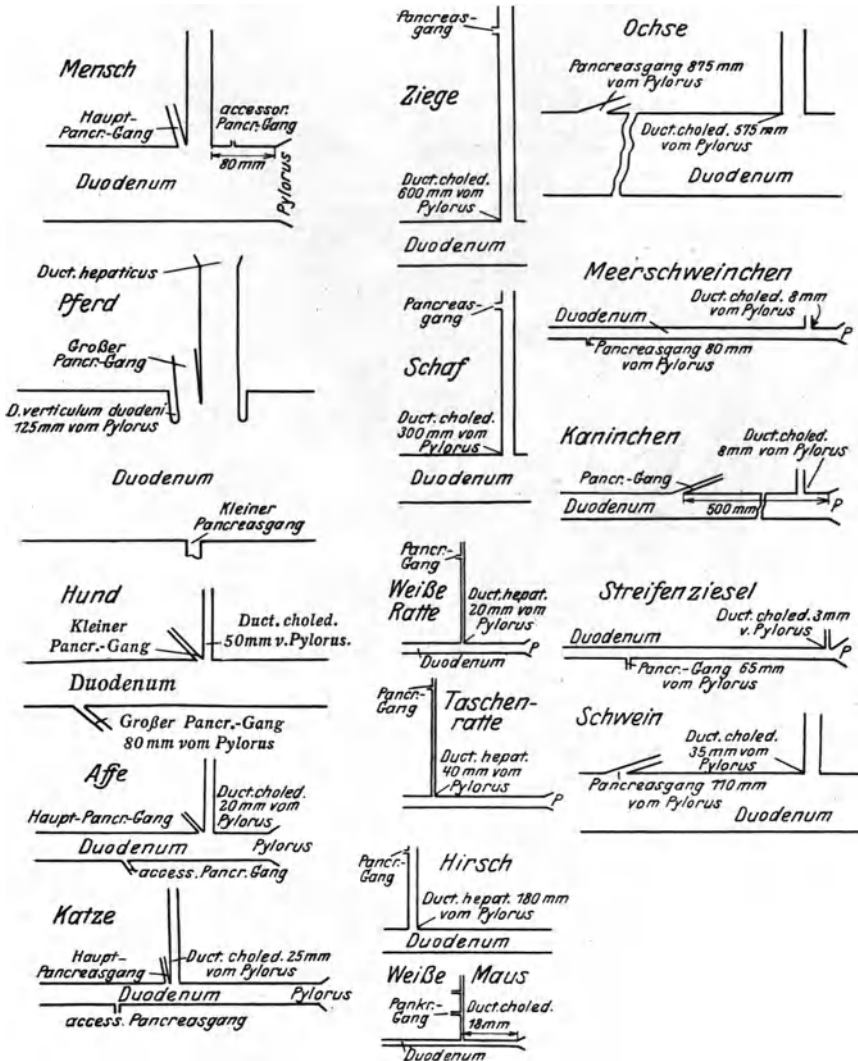 Mensch
Haupt-
Pancr.-Gang
accessor.
Pancr.-Gang
80 mm
Pylorus
Duodenum
Duct. hepaticus
Pferd
Großer
Pancr.-Gang
D.verticulum duodeni
125mm vom Pylorus
Duodenum
Kleiner
Pancreasgang
Hund
Kleiner
Pancr.-Gang
Duct. choled.
50mm v. Pylorus.
Duodenum
Großer Pancr.-Gang
80 mm vom Pylorus
Affe
Duct.choled.
20 mm vom
Pylorus
Haupt-Pancr.-Gang
Duodenum
Pylorus
access. Pancr. Gang
Katze
Haupt-
Pancreasgang
Duct. choled. 25mm
vom Pylorus
Duodenum
Pylorus
access. Pancreasgang
Pancreas-
gang
Ziege
Duct. choled.
600 mm vom
Pylorus
Duodenum
Pancreas-
gang
Schaf
Duct. choled.
300 mm vom
Pylorus
Duodenum
Pancr.-
Gang
Weiße
Ratte
Duct. hepat.
20 mm vom
Pylorus
P
Duodenum
Pancr.-
Gang
Taschen-
ratte
Duct. hepat.
40 mm vom
Pylorus
P
Pancr.-
Gang
Hirsch
Duct. hepat. 180 mm
vom Pylorus
Duodenum
Weiße Maus
Pankr.-
Gang
Duct.choled.
18mm
Duodenum
Ochse
Pancreasgang 875 mm
vom Pylorus
Duct. choled. 575 mm
vom Pylorus
Duodenum
Meerschweinchen
Duct. choled. 8mm
vom Pylorus
Duodenum
P
Pancreasgang 80 mm
vom Pylorus
Kaninchen
Duct. choled.
8mm vom Pylorus
Pancr.-Gang
Duodenum
500 mm
P
Streifenziesel
Duct. choled. 3mm
v. Pylorus
Duodenum
P
Pancr.-Gang 65 mm
vom Pylorus
Schwein
Duct. choled.
35 mm vom
Pylorus
Pancreasgang 110 mm
vom Pylorus
Duodenum